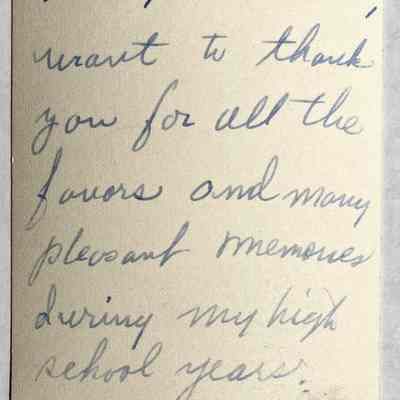 want to thank
you for all the
favors and many
pleasant memories
during my high
school years.